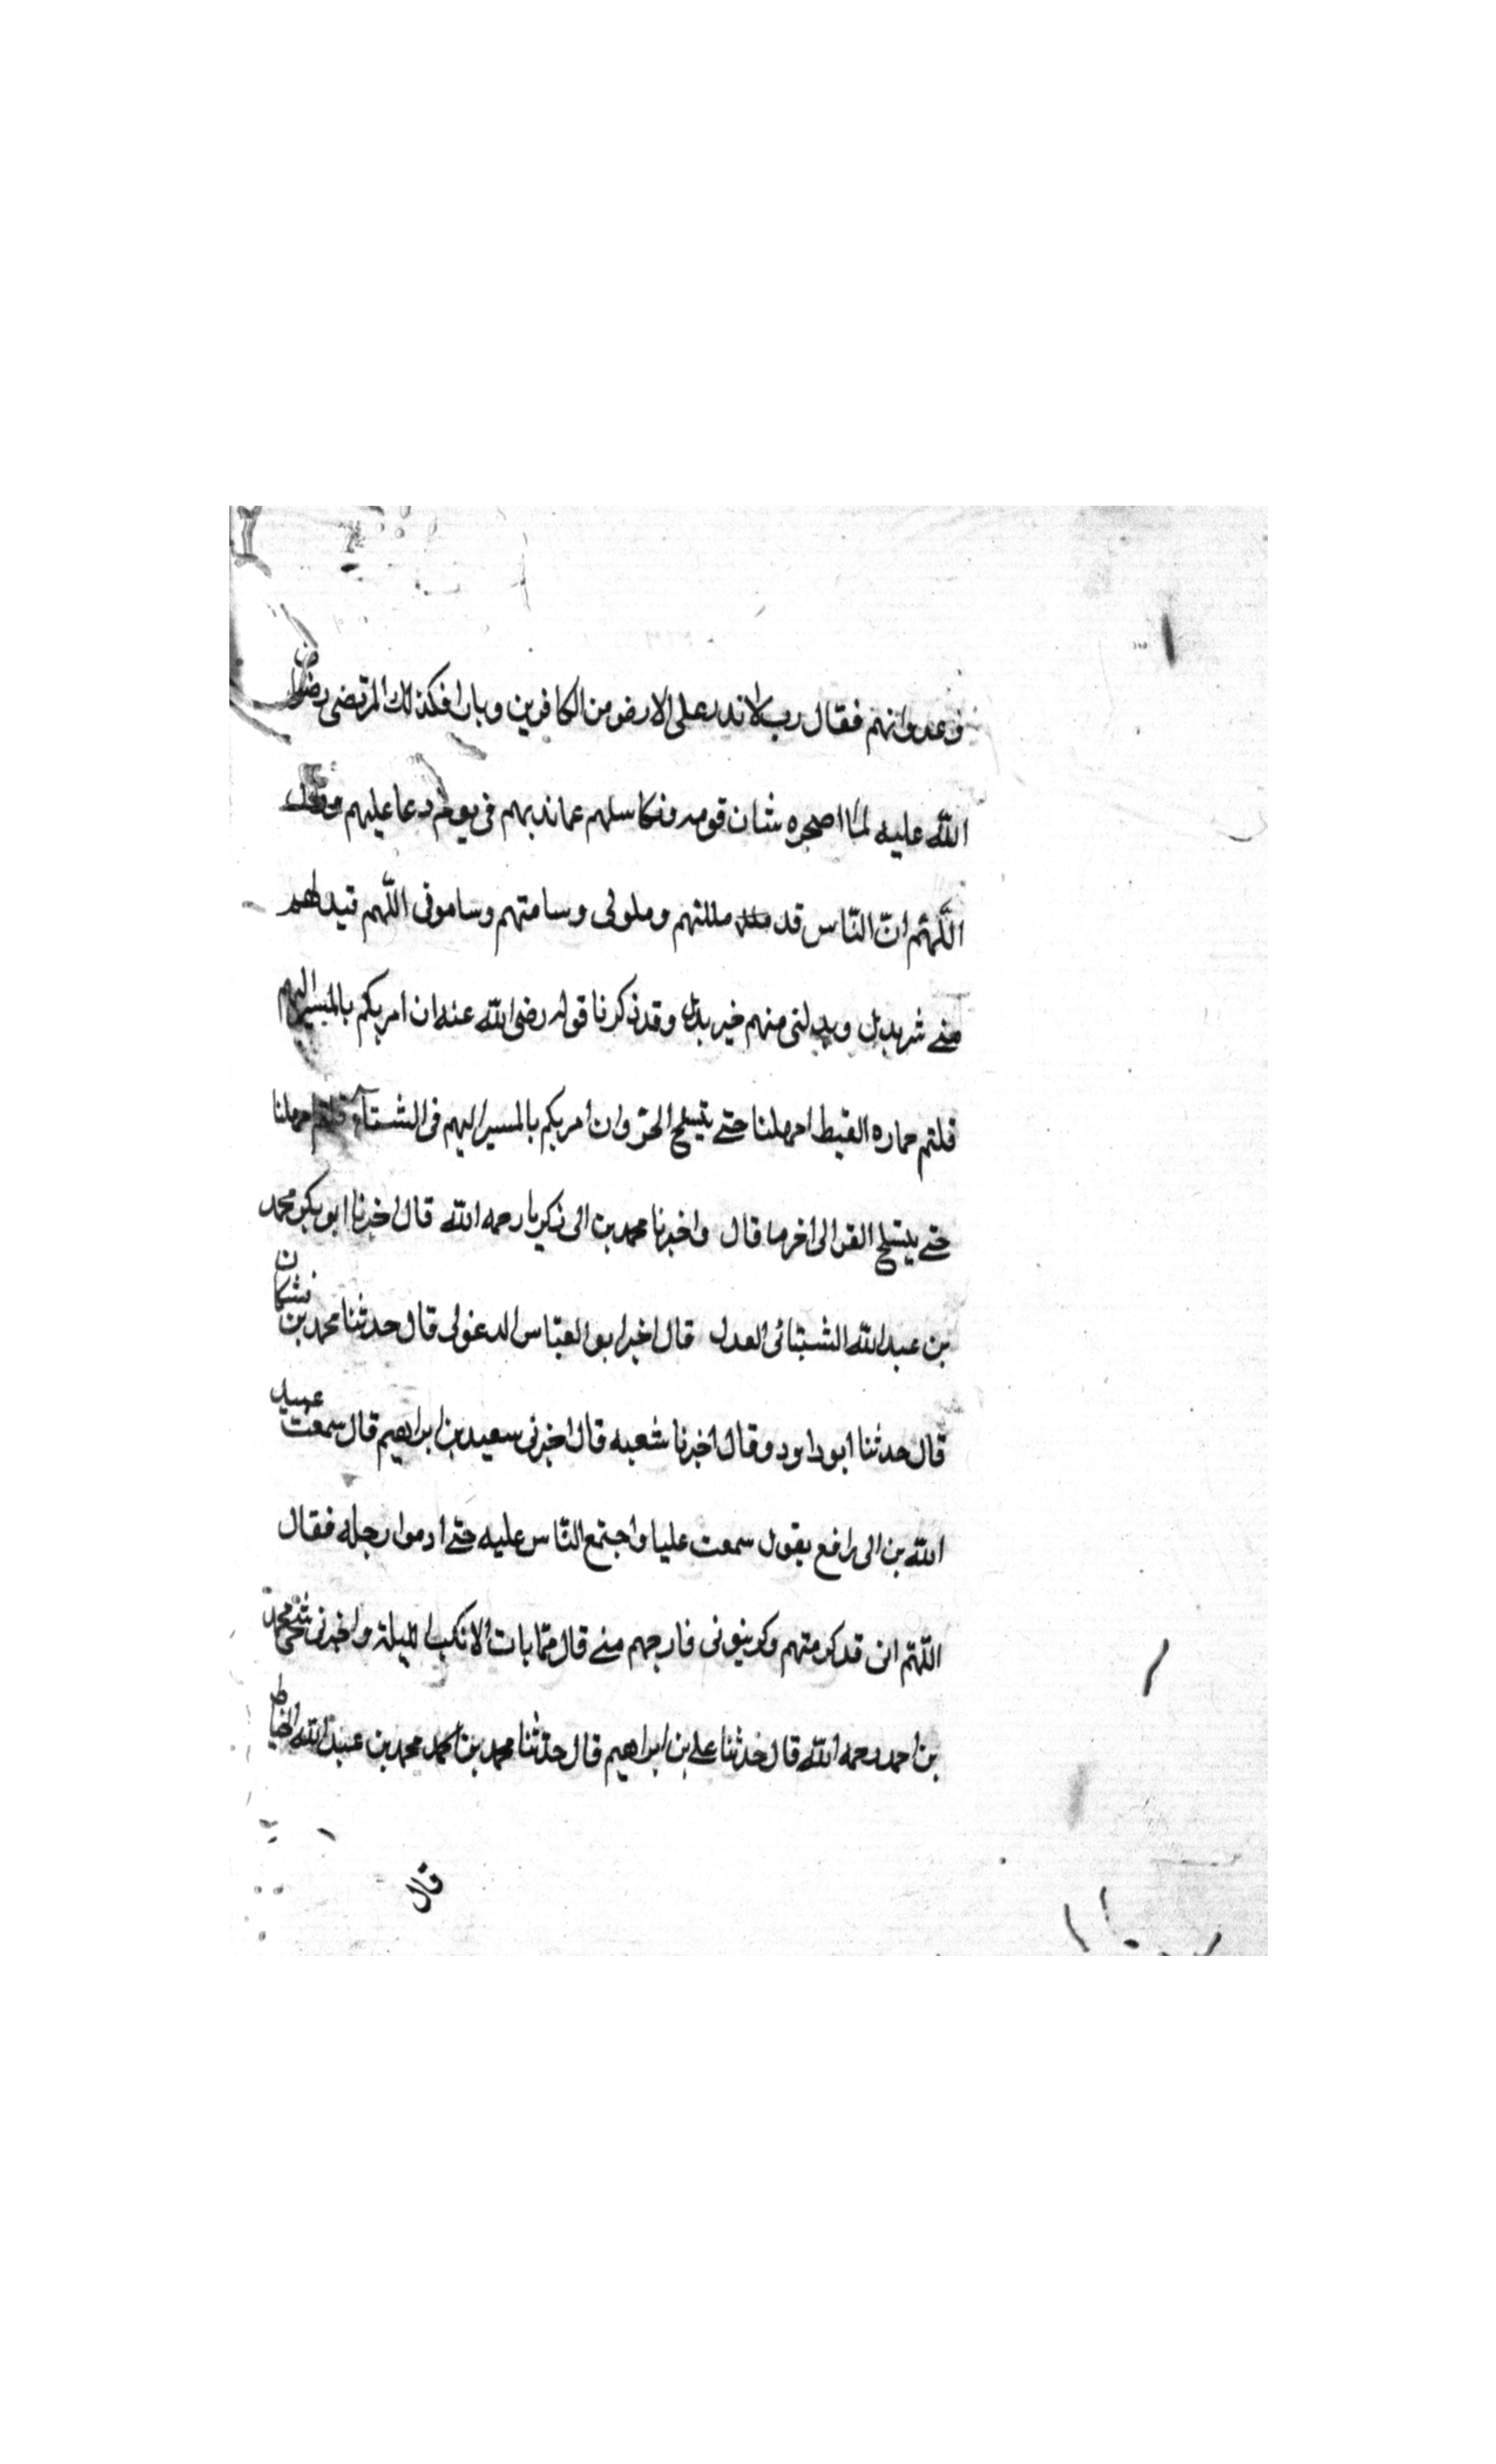 وعدوانهم فقال رب لا تذر على الارض من الكافرين ديارا فكذلك المرتضى رضوان
الله عليه لما اضجره شان قومه دعا عليهم
اللهم ان الناس قد مللتهم وملونى وسامتهم وسامونى اللهم فبدلهم
منے شر بدل وبدلنى منهم خير بدل وقد ذكرنا قوله رضى الله عنه ان امريكم بالمسير اليهم
قلتم حماره القيط امهلنا حتے ينسلخ الحر وان امريكم بالمسير اليهم فى الشتاء قلتم امهلنا
حتے ينسلخ القر الى اخر ما قال واخبرنا محمد بن ابى زكريا رحمه الله قال اخبرنا ابو بكر محمد
بن عبد الله العدل قال اخبرا ابو العباس الدغولى قال حدثنا محمد بن
قال حدثنا ابو داود وقال اخبرنا شعبه قال اخبرنى سعيد بن ابراهيم قال سمعت عبيد
الله بن ابى رافع يقول سمعت عليا واجتمع الناس عليه حتے ادموا رجله فقال
اللهم انى قد كرهتهم وكرهونى فارحهم منے قال فما بات الا تلك الليلة واخبرنى شيخى محمد
بن احمد رحمه الله قال حدثنا علے بن ابراهيم قال حدثنا محمد بن محمد بن عبد الله الخياط
قال